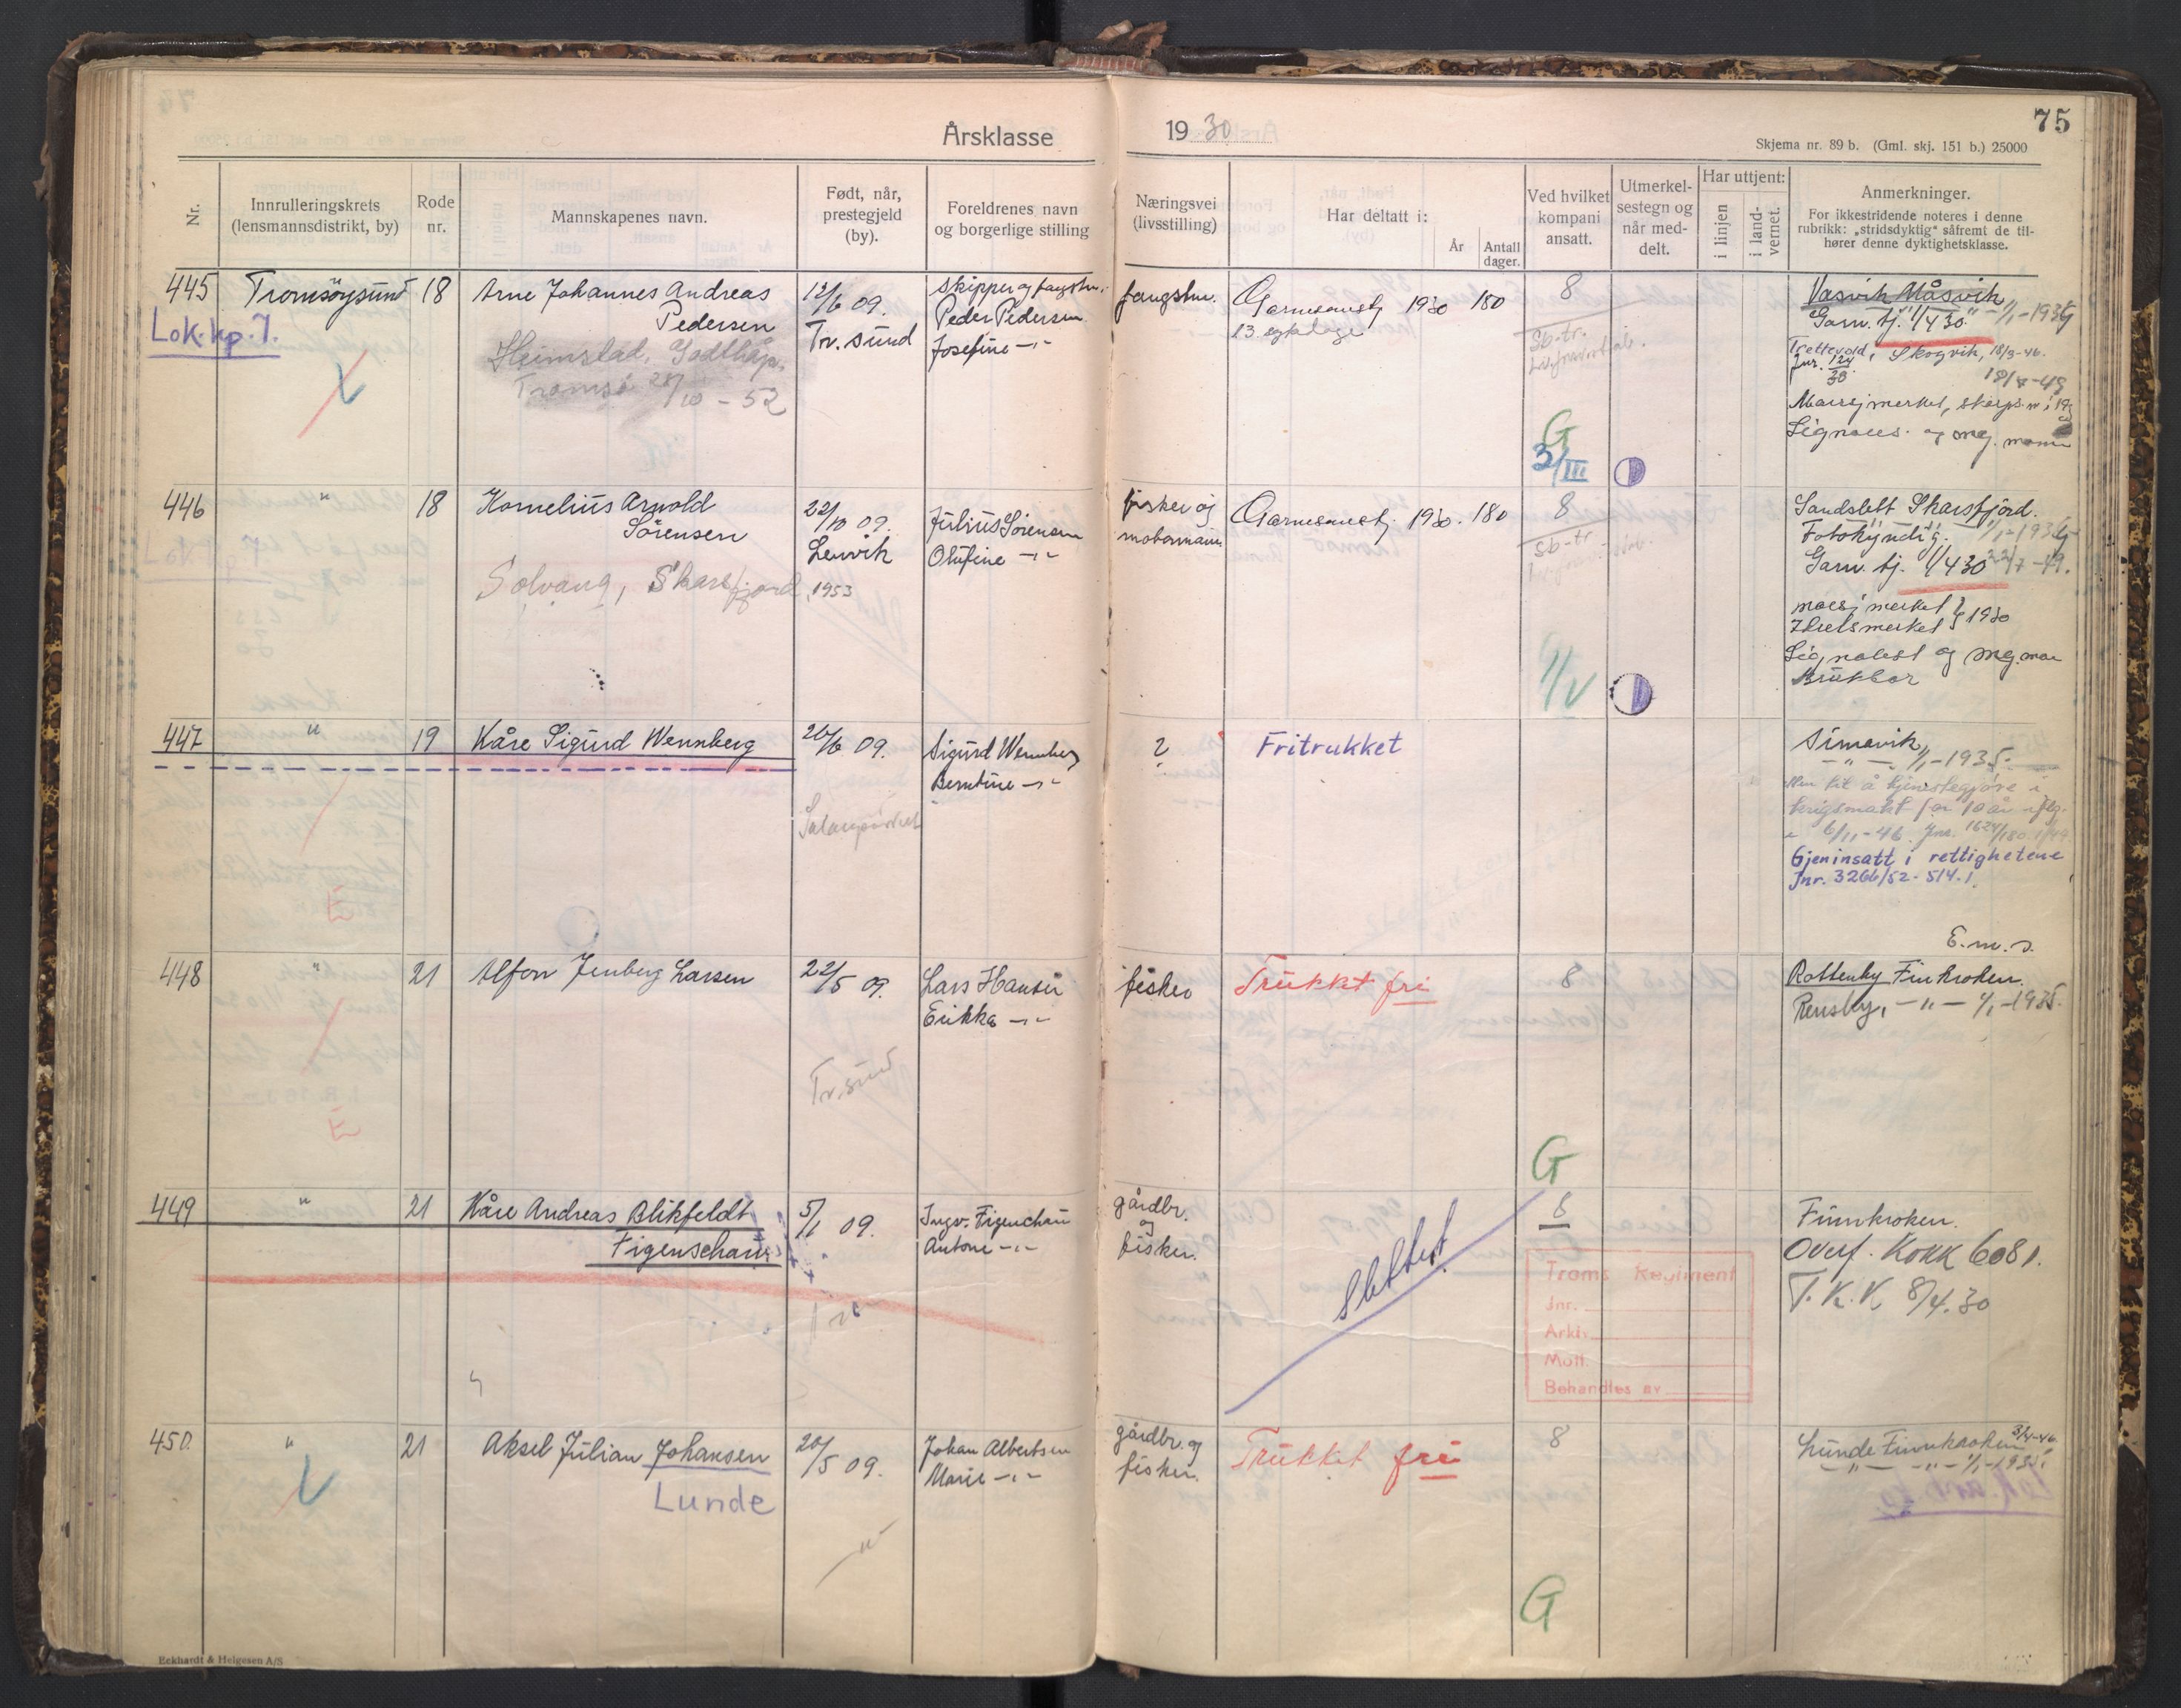 Årsklasse 19 30
75
Skjema nr. 89 b. (Gml. skj. 151 b.) 25000
Nr.
Innrulleringskrets
(lensmannsdistrikt, by)
Rode
nr.
Mannskapenes navn.
Født, når,
prestegjeld
(by).
Foreldrenes navn
og borgerlige stilling
Næringsvei
(livsstilling)
Har deltatt i:
År
Antall
dager.
Ved hvilket
kompani
ansatt.
Utmerkel-
sestegn og
når med-
delt.
Har uttjent:
i linjen
i land-
vernet.
Anmerkninger.
For ikkestridende noteres i denne
rubrikk: „stridsdyktig“ såfremt de til-
hører denne dyktighetsklasse.
445 Tromsöysund 18
Lok. kp. I.
Arne Johannes Andreas
Pedersen
Heimstad, Godthåp,
Tromsö 28/10 - 52
12/6 09.
Tr. sund
Skipper og fangstm.
Peder Pedersen
Josefine -"-
fangstm.
Garnisonstj 1930 180
13 sykedage
8
Sb-tr.
G
3/III
Vasvik Måsvik
Garn. tj. 1/4 30
Trettevold, Skogvik, 18/3-46.
Jnr. 124/30
18/7-49
Marsjmerket, skarps.m.
Signales. og meg. mann
446 " 18
Kornelius Arnold
Sörensen
Solvang, Skarsfjord, 1953
22/10 09.
Lenvik
Julius Sörensen
Olufine -"-
fisker og
motormann
Garnisonstj. 1930. 180
8
Sb-tr
1/V
Sandslett Skarsfjord.
Fotokyndig. 1/1-1935
Garn. tj. 1/4 30 22/7-49.
marsjmerket }
Idretsmerket } 1930
Signalist og meg. man
Brukbar
447 " 19
Kåre Sigurd Wennberg
26/6 09.
Sigurd Wennberg
Berntine -"-
?
Fritrukket
Simavik
-"- 1/1-1935.
Gjeninsatt i rettighetene
Jnr. 3266/52-514.1.
E
448 " 21
Alfon Jenberg Larsen
22/5 09.
Tr.sund
Lars Hansen
Erikka -"-
fisker
Trukkt fri
8
G
E.m.s.
Rottenby Finkroken.
Rensby, -"- 1/1-1935.
E
449 " 21
Kåre Andreas Blikfeldt
Figenschau
5/1 09.
Ingv. Figenchau
Antone -"-
gårdbr.
og
fisker.
Slettet
8
Troms Regiment
Jnr.
Arkiv
Mott.
Behandles av
Finnkroken.
Overf. KoKK 6081.
T.K.K 8/4.30
450. " 21
Aksel Julian Johansen
Lunde
20/5 09.
"
Johan Albertsen
Marie -"-
gårdbr. og
fisker.
Trukket fri
8
G
Lunde Finnkroken 3/4-46
-"- -"- 1/1-1935
Eckhardt & Helgesen A/S